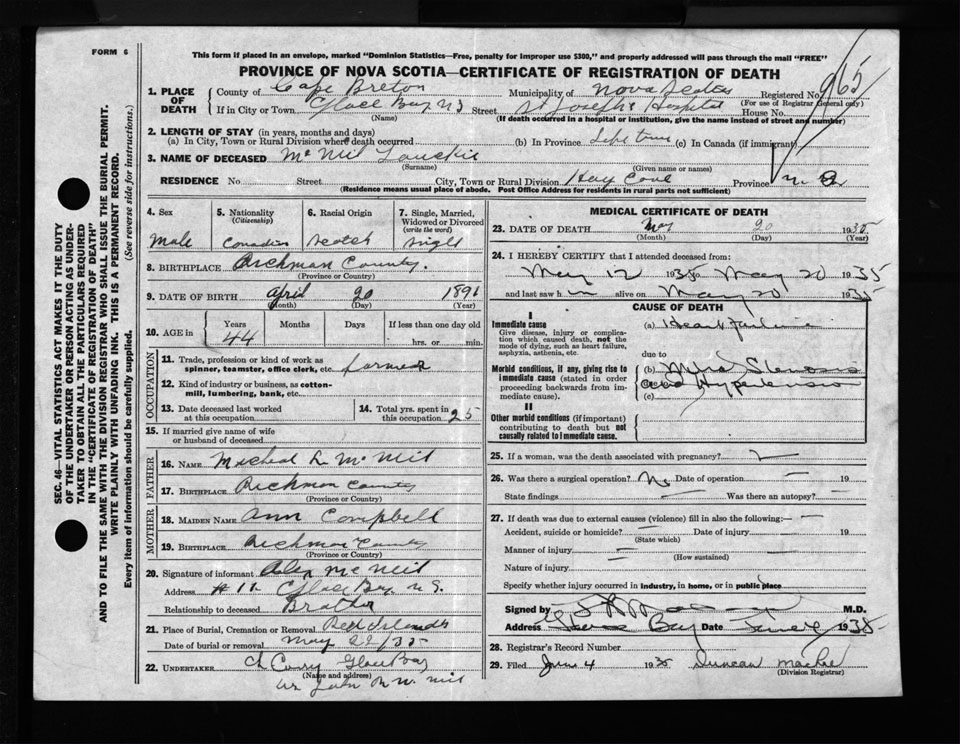 FORM 6
This form if placed in an envelope, marked "Dominion Statistics—Free, penalty for improper use $300," and properly addressed will pass through the mail "FREE"
PROVINCE OF NOVA SCOTIA—CERTIFICATE OF REGISTRATION OF DEATH
965
1. PLACE OF DEATH
County of Cape Breton Municipality of Nova Scotia Registered No.
(For use of Registrar General only)
If in City or Town Glace Bay NS Street St Joseph's Hospital House No.
(Name) (If death occurred in a hospital or institution, give the name instead of street and number)
2. LENGTH OF STAY (in years, months and days)
(a) In City, Town or Rural Division where death occurred (b) In Province Life time (c) In Canada (if immigrant)
3. NAME OF DECEASED McNeil
(Surname) (Given name or names)
RESIDENCE No. Street City, Town or Rural Division Hay Cove Province
(Residence means usual place of abode. Post Office Address for residents in rural parts not sufficient)
4. Sex
Male
5. Nationality (Citizenship)
Canadian
6. Racial Origin
Scotch
7. Single, Married, Widowed or Divorced (write the word)
Single
8. BIRTHPLACE Richmon County.
(Province or County)
9. DATE OF BIRTH April 20 1891
(Month) (Day) (Year)
10. AGE in Years Months Days If less than one day old
44 hrs. or min.
OCCUPATION
11. Trade, profession or kind of work as spinner, teamster, office clerk, etc. farmer
12. Kind of industry or business, as cotton-mill, lumbering, bank, etc.
13. Date deceased last worked at this occupation
14. Total yrs. spent in this occupation 25
15. If married give name of wife or husband of deceased
FATHER
16. Name Micheal R McNeil
17. Birthplace Richmon County
(Province or County)
MOTHER
18. Maiden Name Ann Campbell
19. Birthplace Richmon County
(Province or County)
20. Signature of informant Alex McNeil
Address Glace Bay N.S.
Relationship to deceased Brother
21. Place of Burial, Cremation or Removal Red Islands
Date of burial or removal May 22/35
22. UNDERTAKER Curry Glace Bay
(Name and address)
MEDICAL CERTIFICATE OF DEATH
23. DATE OF DEATH May 20 1935
(Month) (Day) (Year)
24. I HEREBY CERTIFY that I attended deceased from:
May 12 1935 to May 20 1935
and last saw him alive on May 20 1935
CAUSE OF DEATH
I
Immediate cause
Give disease, injury or complication which caused death, not the mode of dying, such as heart failure, asphyxia, asthenia, etc.
(a) Heart failure
due to
Morbid conditions, if any, giving rise to immediate cause (stated in order proceeding backwards from immediate cause).
(b) Mitral Stenosis
Hypertension
(c)
II
Other morbid conditions (if important) contributing to death but not causally related to immediate cause.
25. If a woman, was the death associated with pregnancy?
26. Was there a surgical operation? No Date of operation — 19
State findings — Was there an autopsy? —
27. If death was due to external causes (violence) fill in also the following:—
Accident, suicide or homicide? — Date of injury 19
(State which)
Manner of injury —
(How sustained)
Nature of injury
Specify whether injury occurred in industry, in home, or in public place
Signed by M.D.
Address Glace Bay Date 1935
28. Registrar's Record Number
29. Filed June 4 1935 Duncan MacRae
(Division Registrar)
SEC. 46—VITAL STATISTICS ACT MAKES IT THE DUTY
OF THE UNDERTAKER OR PERSON ACTING AS UNDER-
TAKER TO OBTAIN ALL THE PARTICULARS REQUIRED
IN THE "CERTIFICATE OF REGISTRATION OF DEATH"
AND TO FILE THE SAME WITH THE DIVISION REGISTRAR WHO SHALL ISSUE THE BURIAL PERMIT.
WRITE PLAINLY WITH UNFADING INK. THIS IS A PERMANENT RECORD.
Every item of information should be carefully supplied. (See reverse side for instructions.)